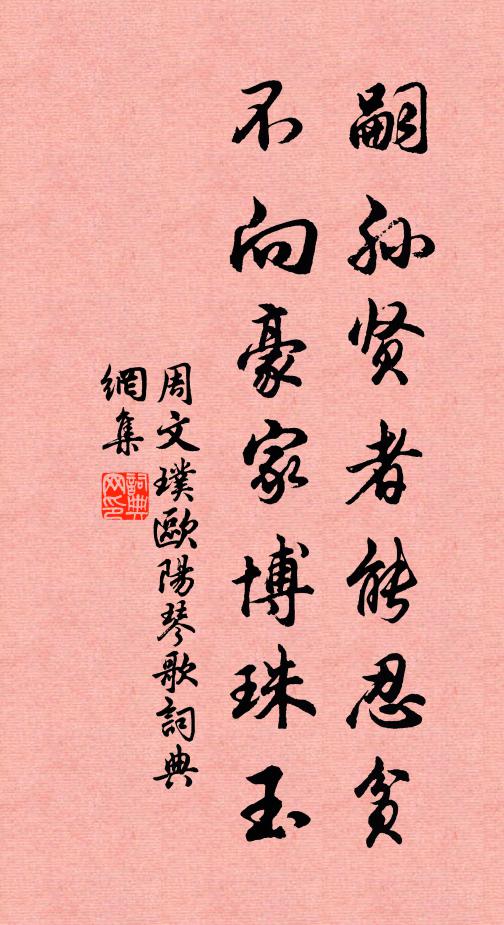 嗣孙贤者能忍贫
不向豪家博珠玉
周文璞歐陽琴歌詞典
網集
詞典
网印